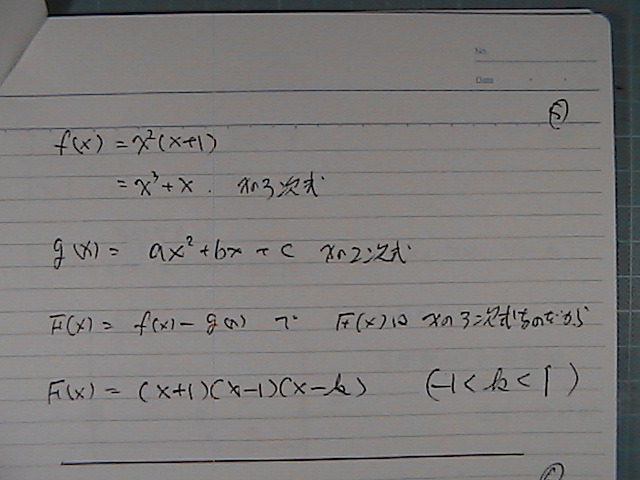 No.
Date
⑤
f(x) = x²(x+1)
= x³+x. xの3次式
g(x) = ax²+bx+c xの2次式
F(x) = f(x)-g(x) で F(x)は xの3次式なのだから
F(x) = (x+1)(x-1)(x-k) (-1<k<1)